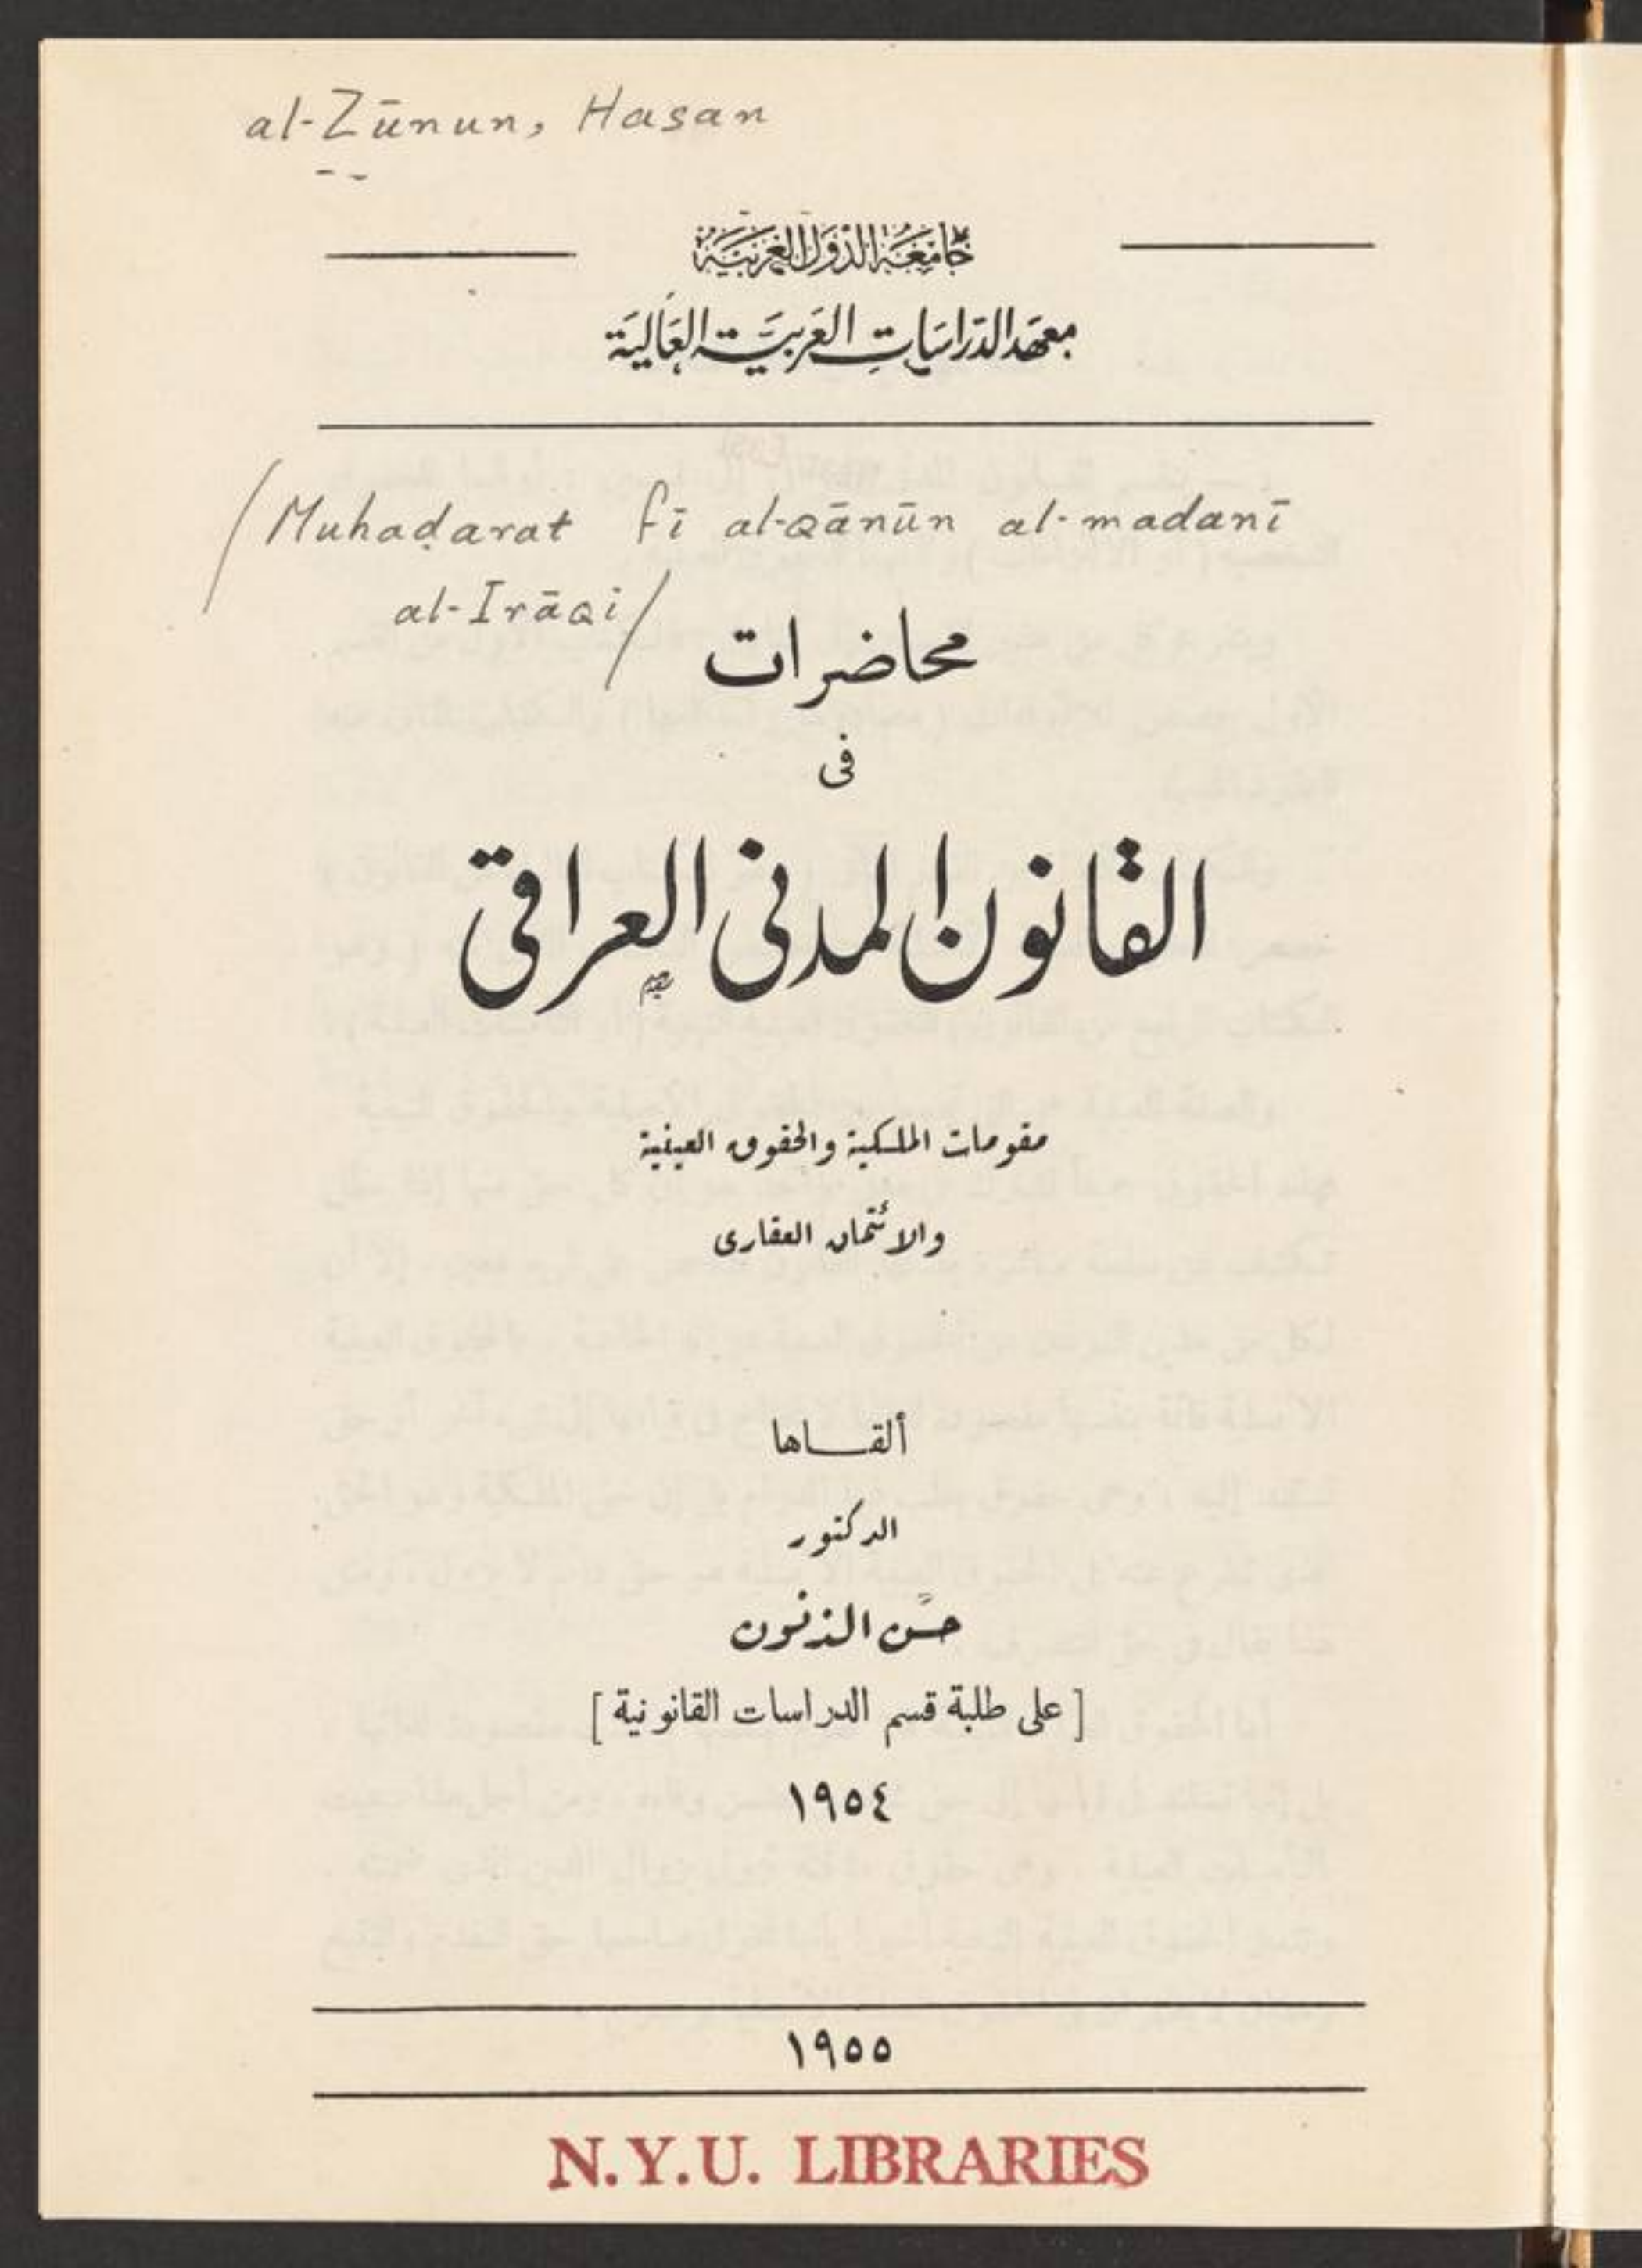 al-Zūnun, Hasan
جامعة الدول العربية
معهد الدراسات العربية العالية
/Muhaḍarat fī al-qānūn al-madanī
al-Irāqi/
محاضرات
فى
القانون المدنى العراقى
مقومات الملكية والحقوق العينية
والائتمان العقارى
ألقاها
الدكتور
حسن الذنون
[ على طلبة قسم الدراسات القانونية ]
١٩٥٤
١٩٥٥
N.Y.U. LIBRARIES